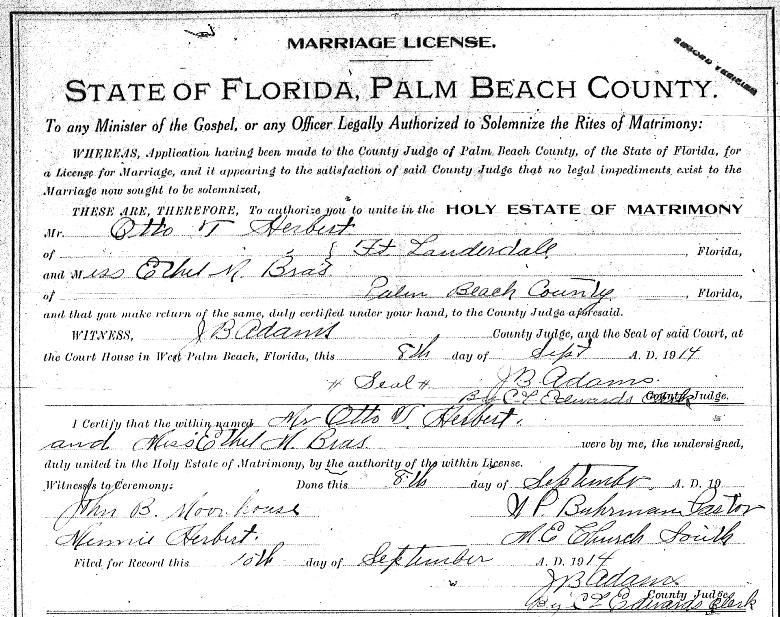 MARRIAGE LICENSE.
RECORD VERIFIED
STATE OF FLORIDA, PALM BEACH COUNTY.
To any Minister of the Gospel, or any Officer Legally Authorized to Solemnize the Rites of Matrimony:
WHEREAS, Application having been made to the County Judge of Palm Beach County, of the State of Florida, for
a License for Marriage, and it appearing to the satisfaction of said County Judge that no legal impediments exist to the
Marriage now sought to be solemnized,
THESE ARE, THEREFORE, To authorize you to unite in the HOLY ESTATE OF MATRIMONY
Mr. Otto T Herbert
of Ft. Lauderdale Florida,
and Miss Ethel M. Bras
of Palm Beach County, Florida,
and that you make return of the same, duly certified under your hand, to the County Judge aforesaid.
WITNESS, J B Adams County Judge, and the Seal of said Court, at
the Court House in West Palm Beach, Florida, this 8th day of Sept A. D. 1914
" Seal " J B Adams.
By C L Edwards Clerk County Judge.
I Certify that the within named Mr Otto T. Herbert.
and Miss Ethel M Bras were by me, the undersigned,
duly united in the Holy Estate of Matrimony, by the authority of the within License.
Witness to Ceremony: Done this 8th day of September A. D. 19
John B. Moorhouse W P Buhrman Pastor
Minnie Herbert. M E Church South
Filed for Record this 10th day of September A. D. 1914
J B Adams County Judge
By C L Edwards Clerk